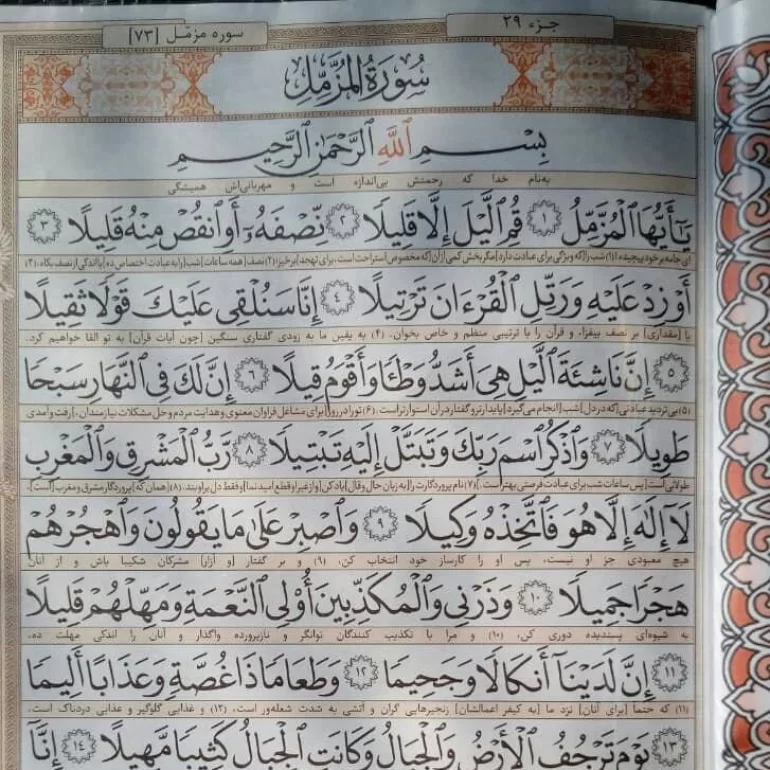 جزء ۲۹
سوره مزمّل [۷۳]
سُورَةُ المُزَّمِّلِ
بِسْمِ ٱللَّهِ ٱلرَّحْمَٰنِ ٱلرَّحِيمِ
به‌نام خدا که رحمتش بی‌اندازه است و مهربانی‌اش همیشگی
يَٰٓأَيُّهَا ٱلْمُزَّمِّلُ ۱ قُمِ ٱلَّيْلَ إِلَّا قَلِيلًا ۲ نِّصْفَهُۥٓ أَوِ ٱنقُصْ مِنْهُ قَلِيلًا ۳
ای جامه بر خود پیچیده! (۱) شب را [که ویژگی برای عبادت دارد] مگر بخش کمی از آن [که مخصوص استراحت است، برای تهجد] برخیز؛ (۲) نصف [همه ساعات] شب [را به عبادت اختصاص ده] یا اندکی از نصف بکاه، (۳)
أَوْ زِدْ عَلَيْهِ وَرَتِّلِ ٱلْقُرْءَانَ تَرْتِيلًا ۴ إِنَّا سَنُلْقِي عَلَيْكَ قَوْلًا ثَقِيلًا
یا [مقداری] بر نصف بیفزا، و قرآن را با ترتیبی منظم و خاص بخوان. (۴) به یقین ما به زودی گفتاری سنگین [چون آیات قرآن] به تو القا خواهیم کرد.
۵ إِنَّ نَاشِئَةَ ٱلَّيْلِ هِيَ أَشَدُّ وَطْـًٔا وَأَقْوَمُ قِيلًا ۶ إِنَّ لَكَ فِي ٱلنَّهَارِ سَبْحًا
(۵) بی‌تردید عبادتی [که در دل] شب [انجام می‌گیرد] پایدارتر و گفتار در آن استوارتر است. (۶) تو را در روز [برای مشاغل فراوان معنوی و هدایت مردم و حل مشکلات نیازمندان،] رفت و آمدی
طَوِيلًا ۷ وَٱذْكُرِ ٱسْمَ رَبِّكَ وَتَبَتَّلْ إِلَيْهِ تَبْتِيلًا ۸ رَّبُّ ٱلْمَشْرِقِ وَٱلْمَغْرِبِ
طولانی است [پس ساعات شب برای عبادت فرصتی بهتر است.] (۷) نام پروردگارت را [به زبان حال و قال] یاد کن [و از غیر او قطع امید نما] و فقط دل بر او بند. (۸) [همان که] پروردگار مشرق و مغرب [است].
لَآ إِلَٰهَ إِلَّا هُوَ فَٱتَّخِذْهُ وَكِيلًا ۹ وَٱصْبِرْ عَلَىٰ مَا يَقُولُونَ وَٱهْجُرْهُمْ
هیچ معبودی جز او نیست، پس او را کارساز خود انتخاب کن، (۹) و بر گفتار [و آزار] مشرکان شکیبا باش و از آنان
هَجْرًا جَمِيلًا ۱۰ وَذَرْنِي وَٱلْمُكَذِّبِينَ أُو۟لِي ٱلنَّعْمَةِ وَمَهِّلْهُمْ قَلِيلًا
به شیوه‌ای پسندیده دوری کن، (۱۰) و مرا با تکذیب کنندگان توانگر و نازپرورده واگذار و آنان را اندکی مهلت ده،
۱۱ إِنَّ لَدَيْنَآ أَنكَالًا وَجَحِيمًا ۱۲ وَطَعَامًا ذَا غُصَّةٍ وَعَذَابًا أَلِيمًا
(۱۱) که حتما [برای آنان] نزد ما [به کیفر اعمالشان] زنجیرهایی گران و آتشی به شدت شعله‌ور است، (۱۲) و غذایی گلوگیر و عذابی دردناک است.
۱۳ يَوْمَ تَرْجُفُ ٱلْأَرْضُ وَٱلْجِبَالُ وَكَانَتِ ٱلْجِبَالُ كَثِيبًا مَّهِيلًا ۱۴ إِنَّآ